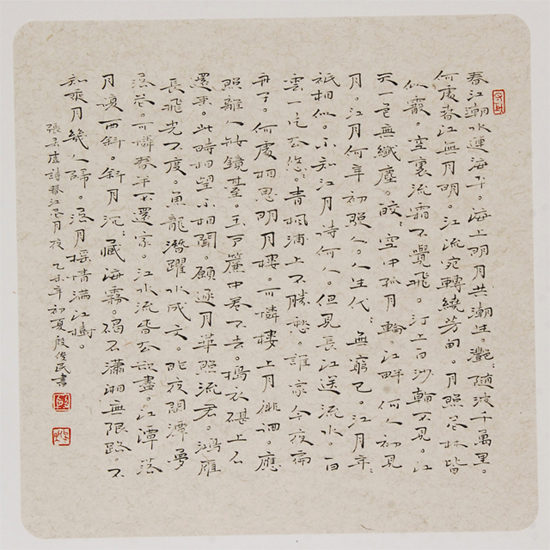 春江潮水連海平。海上明月共潮生。灩〻隨波千萬里。
何處春江無月明。江流宛轉繞芳甸。月照花林皆
似霰。空裏流霜不覺飛。汀上白沙看不見。江
天一色無纖塵。皎〻空中孤月輪。江畔何人初見
月。江月何年初照人。人生代〻無窮已。江月年〻
祇相似。不知江月待何人。但見長江送流水。白
雲一片去悠〻。青楓浦上不勝愁。誰家今夜扁
舟子。何處相思明月樓。可憐樓上月徘徊。應
照離人妝鏡臺。玉戶簾中卷不去。搗衣砧上
還來。此時相望不相聞。願逐月華照流君。鴻雁
長飛光不度。魚龍潛躍水成文。昨夜閑潭夢
落花。可憐春半不還家。江水流春去欲盡。江潭落
月復西斜。斜月沉〻藏海霧。碣石瀟湘無限路。不
知乘月幾人歸。落月搖情滿江樹。
張若虛詩春江花月夜 乙未年初夏 殷俊民書